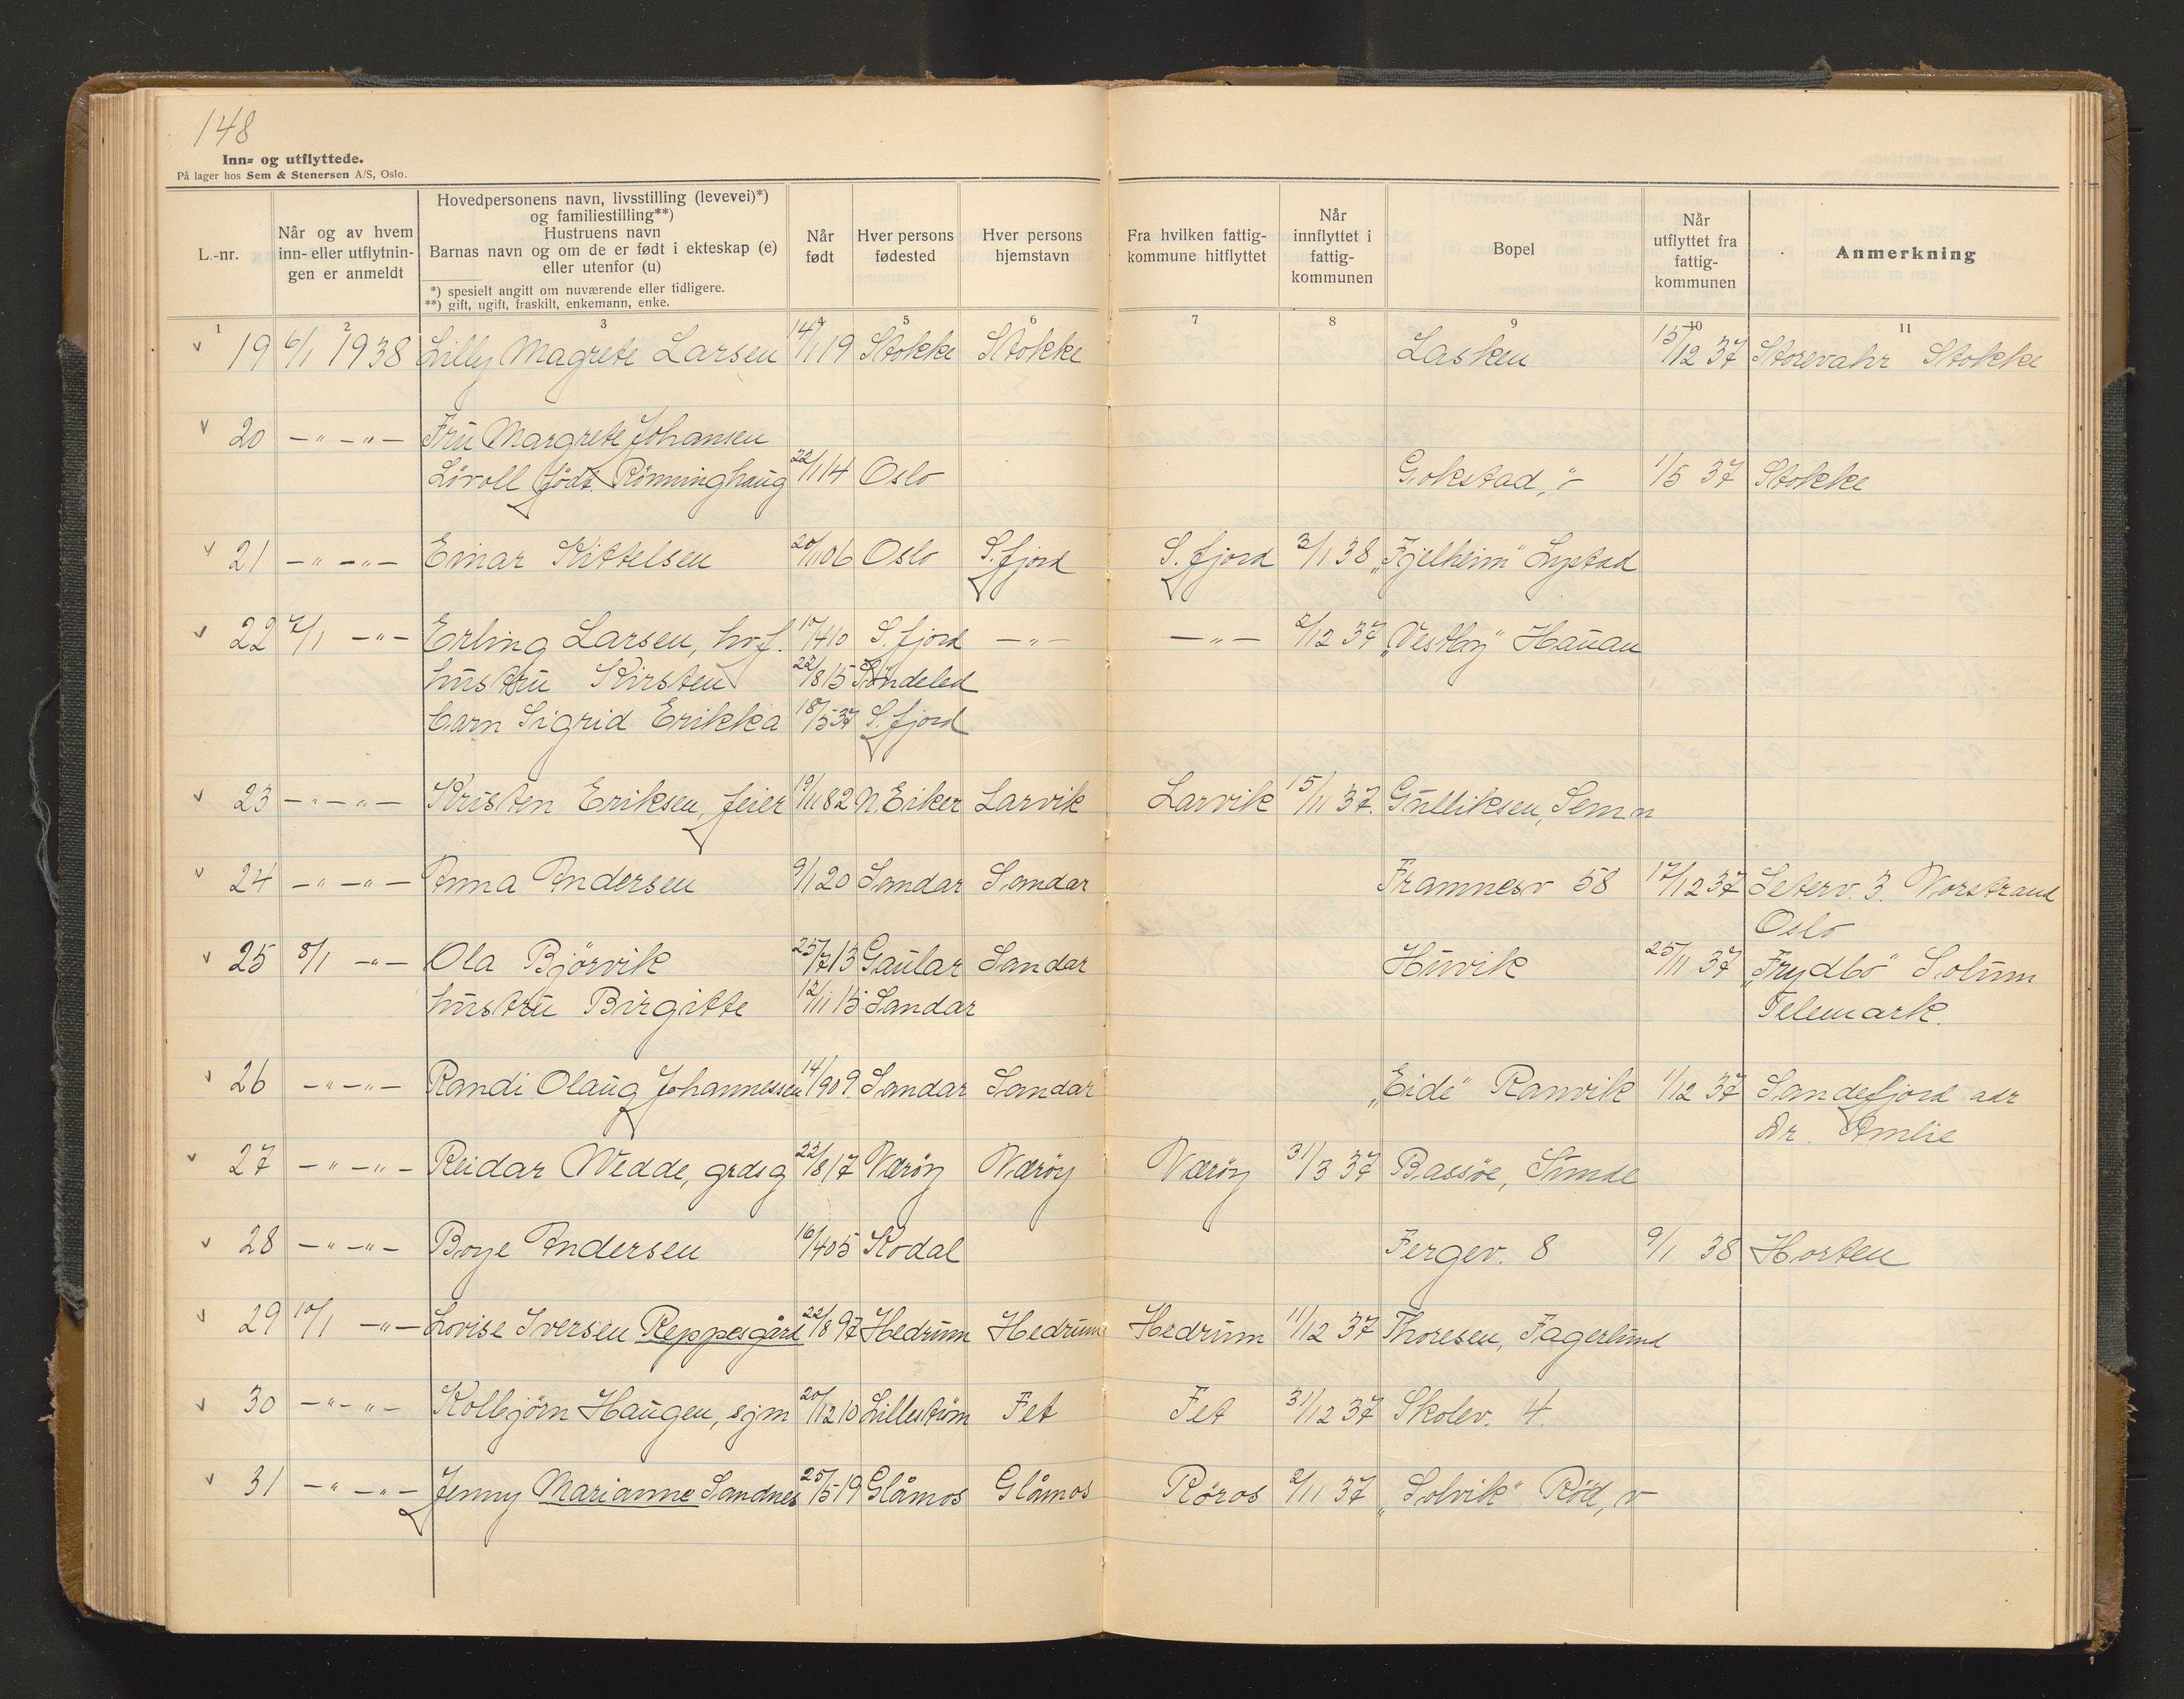 148
Inn- og utflyttede.
På lager hos Sem & Stenersen A/S, Oslo.
L.-nr.
Når og av hvem inn- eller utflytningen er anmeldt
Hovedpersonens navn, livsstilling (levevei)*) og familiestilling**)
Hustruens navn
Barnas navn og om de er født i ekteskap (e) eller utenfor (u)
*) spesielt angitt om nuværende eller tidligere.
**) gift, ugift, fraskilt, enkemann, enke.
Når født
Hver persons fødested
Hver persons hjemstavn
Fra hvilken fattigkommune hitflyttet
Når innflyttet i fattigkommunen
Bopel
Når utflyttet fra fattigkommunen
Anmerkning
1 2 3 4 5 6 7 8 9 10 11
v 19 6/1 1938 Lilly Magrete Larsen 14/1 19 Stokke Stokke Lasken 15/12 37 Storevahr Stokke
v 20 -"-"- Fru Margrete Johansen
Lövoll født Rönninghaug 22/1 14 Oslo Gokstad, v 1/5 37 Stokke
v 21 -"-"- Einar Kittelsen 20/1 06 Oslo S.fjord S.fjord 3/1 38 „Fjelheim" Lystad
v 22 7/1 -"- Erling Larsen, hvf. 17/4 10 S.fjord -"- -"- 2/12 37 „Vestby" Hauan
hustru Kirsten 22/8 15 Söndeled
barn Sigrid Erikka 18/5 37 S.fjord
v 23 -"-"- Kristen Eriksen, feier 19/11 82 N.Eiker Larvik Larvik 15/11 37. Gulliksen, Sem n
v 24 -"-"- Anna Andersen 9/1 20 Sandar Sandar Framnesv 58 17/12 37 Seterv. 3. Norstrand
Oslo
v 25 8/1 -"- Ola Björvik 25/7 13 Gaular Sandar Huvik 25/11 37 „Frydbo" Solum
hustru Birgitte 12/11 15 Sandar Telemark.
v 26 -"-"- Randi Olaug Johannessen 14/9 09. Sandar Sandar „Eide" Ranvik 1/12 37 Sandefjord adr
Dr. Amlie
v 27 -"-"- Reidar Wedde, grdsg 22/8 17 Væröy Væröy Væröy 31/3 37 Bassöe, Sunde
v 28 -"-"- Boye Andersen 16/4 05 Kodal Fergev. 8 9/1 38 Horten
v 29 10/1 -"- Lovise Iversen Reppesgård 22/8 97 Hedrum Hedrum Hedrum 11/12 37 Thoresen, Fagerlund
v 30 -"-"- Kolbjörn Haugen, sjm 20/12 10 Lilleström Fet Fet 31/12 37 Skolev. 4.
v 31 -"-"- Jenny Marianne Sandnes 25/5 19 Glåmos Glåmos Röros 2/11 37 „Solvik" Röd, v